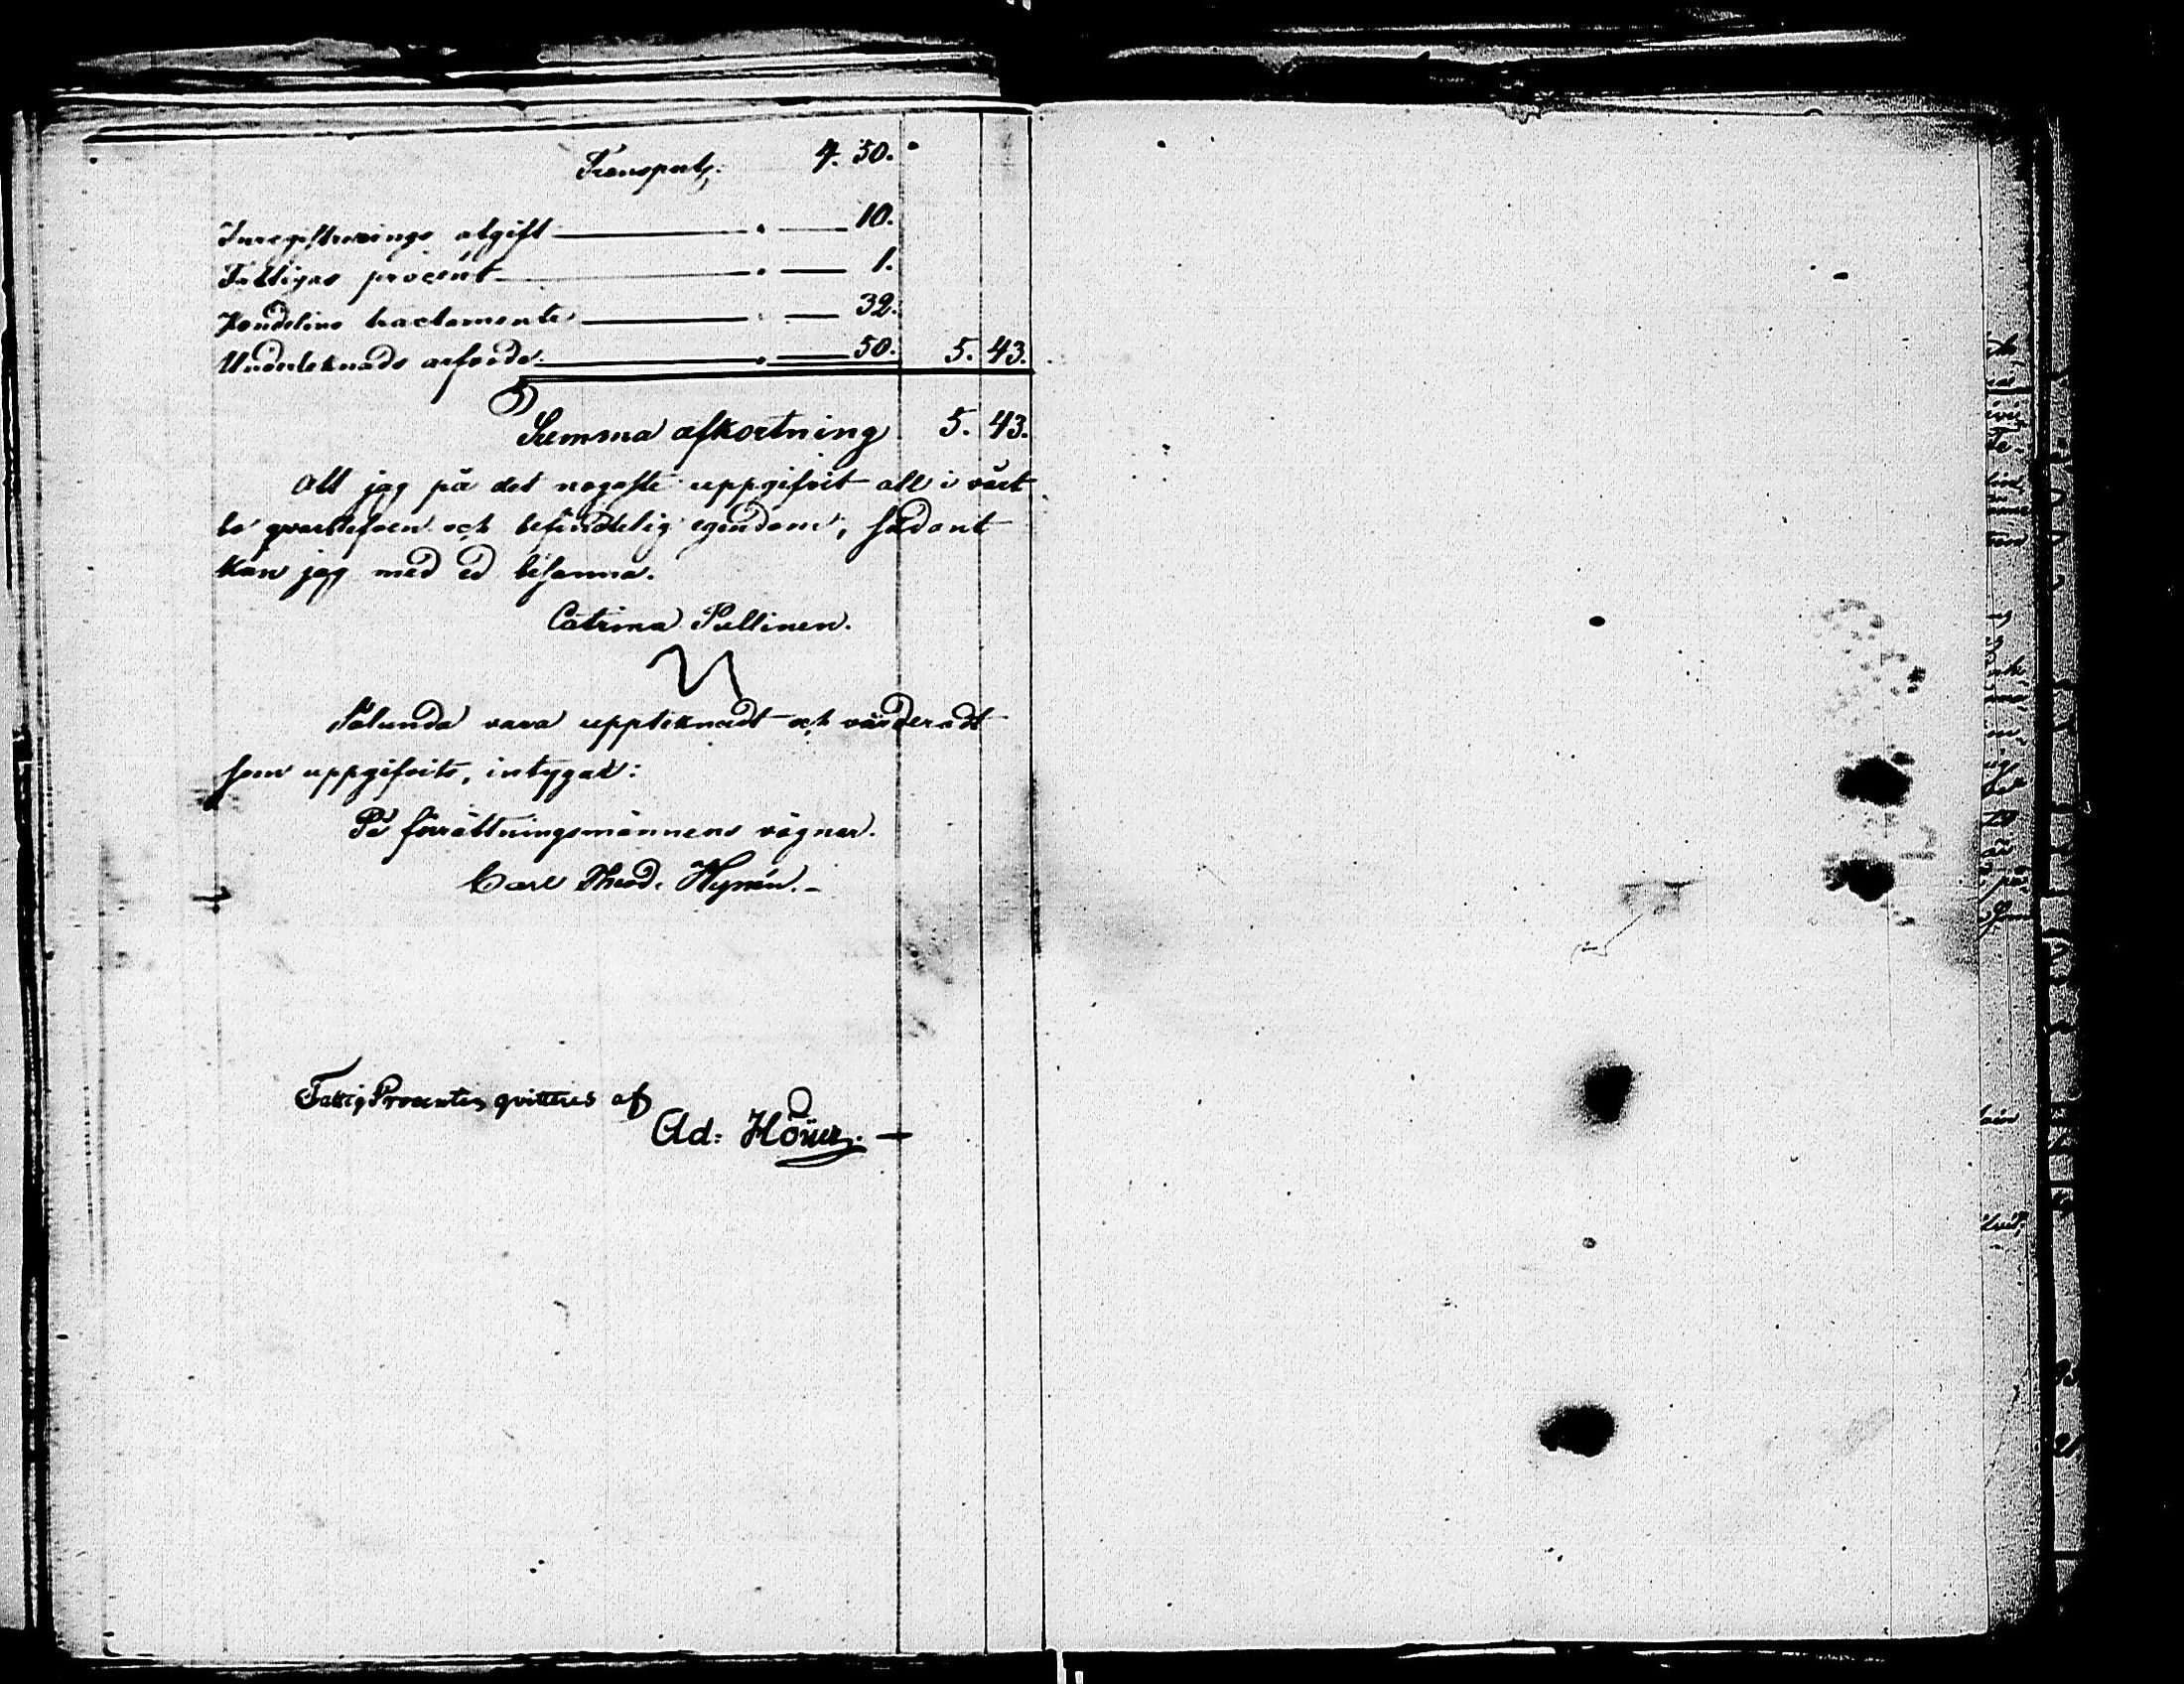 Transport: 4. 50.
Inregistrerings afgift 10.
Fattigas procent 1.
Handelins tractamente 32.
Undertecknads arfvode 50. 5. 43.
Summa afkortning 5. 43.
Att jag på det nogaste uppgifvit all i vårt
bo qvarblefven och befindtelig egendom, sådant
kan jag med ed besanna.
Catrina Pullinen.
Sålunda vara upptecknadt och värderadt
som uppgifvits, intygar:
På förrättningsmännens vägnar.
Carl Theod. Hymén.
FattigProcenten qvitteras af
Ad: